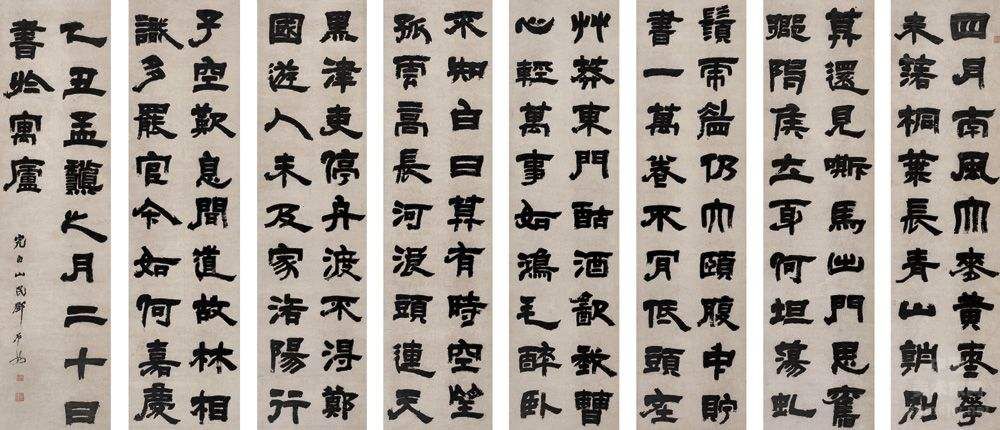 四月南風大麥黃棗華
未落桐葉長青山朝別
莫還見嘶馬出門思舊
鄉陳侯立身何坦蕩虬
鬚虎眉仍大顙腹中貯
書一萬卷不肯低頭在
艸莽東門酤酒飲我曹
心輕萬事如鴻毛醉臥
不知白日莫有時空望
孤雲高長河浪頭連天
黑津吏停舟渡不得鄭
國遊人未及家洛陽行
子空歎息聞道故林相
識多罷官今如何嘉慶
乙丑孟龝之月二十日
書於寓廬
完白山民鄧石如